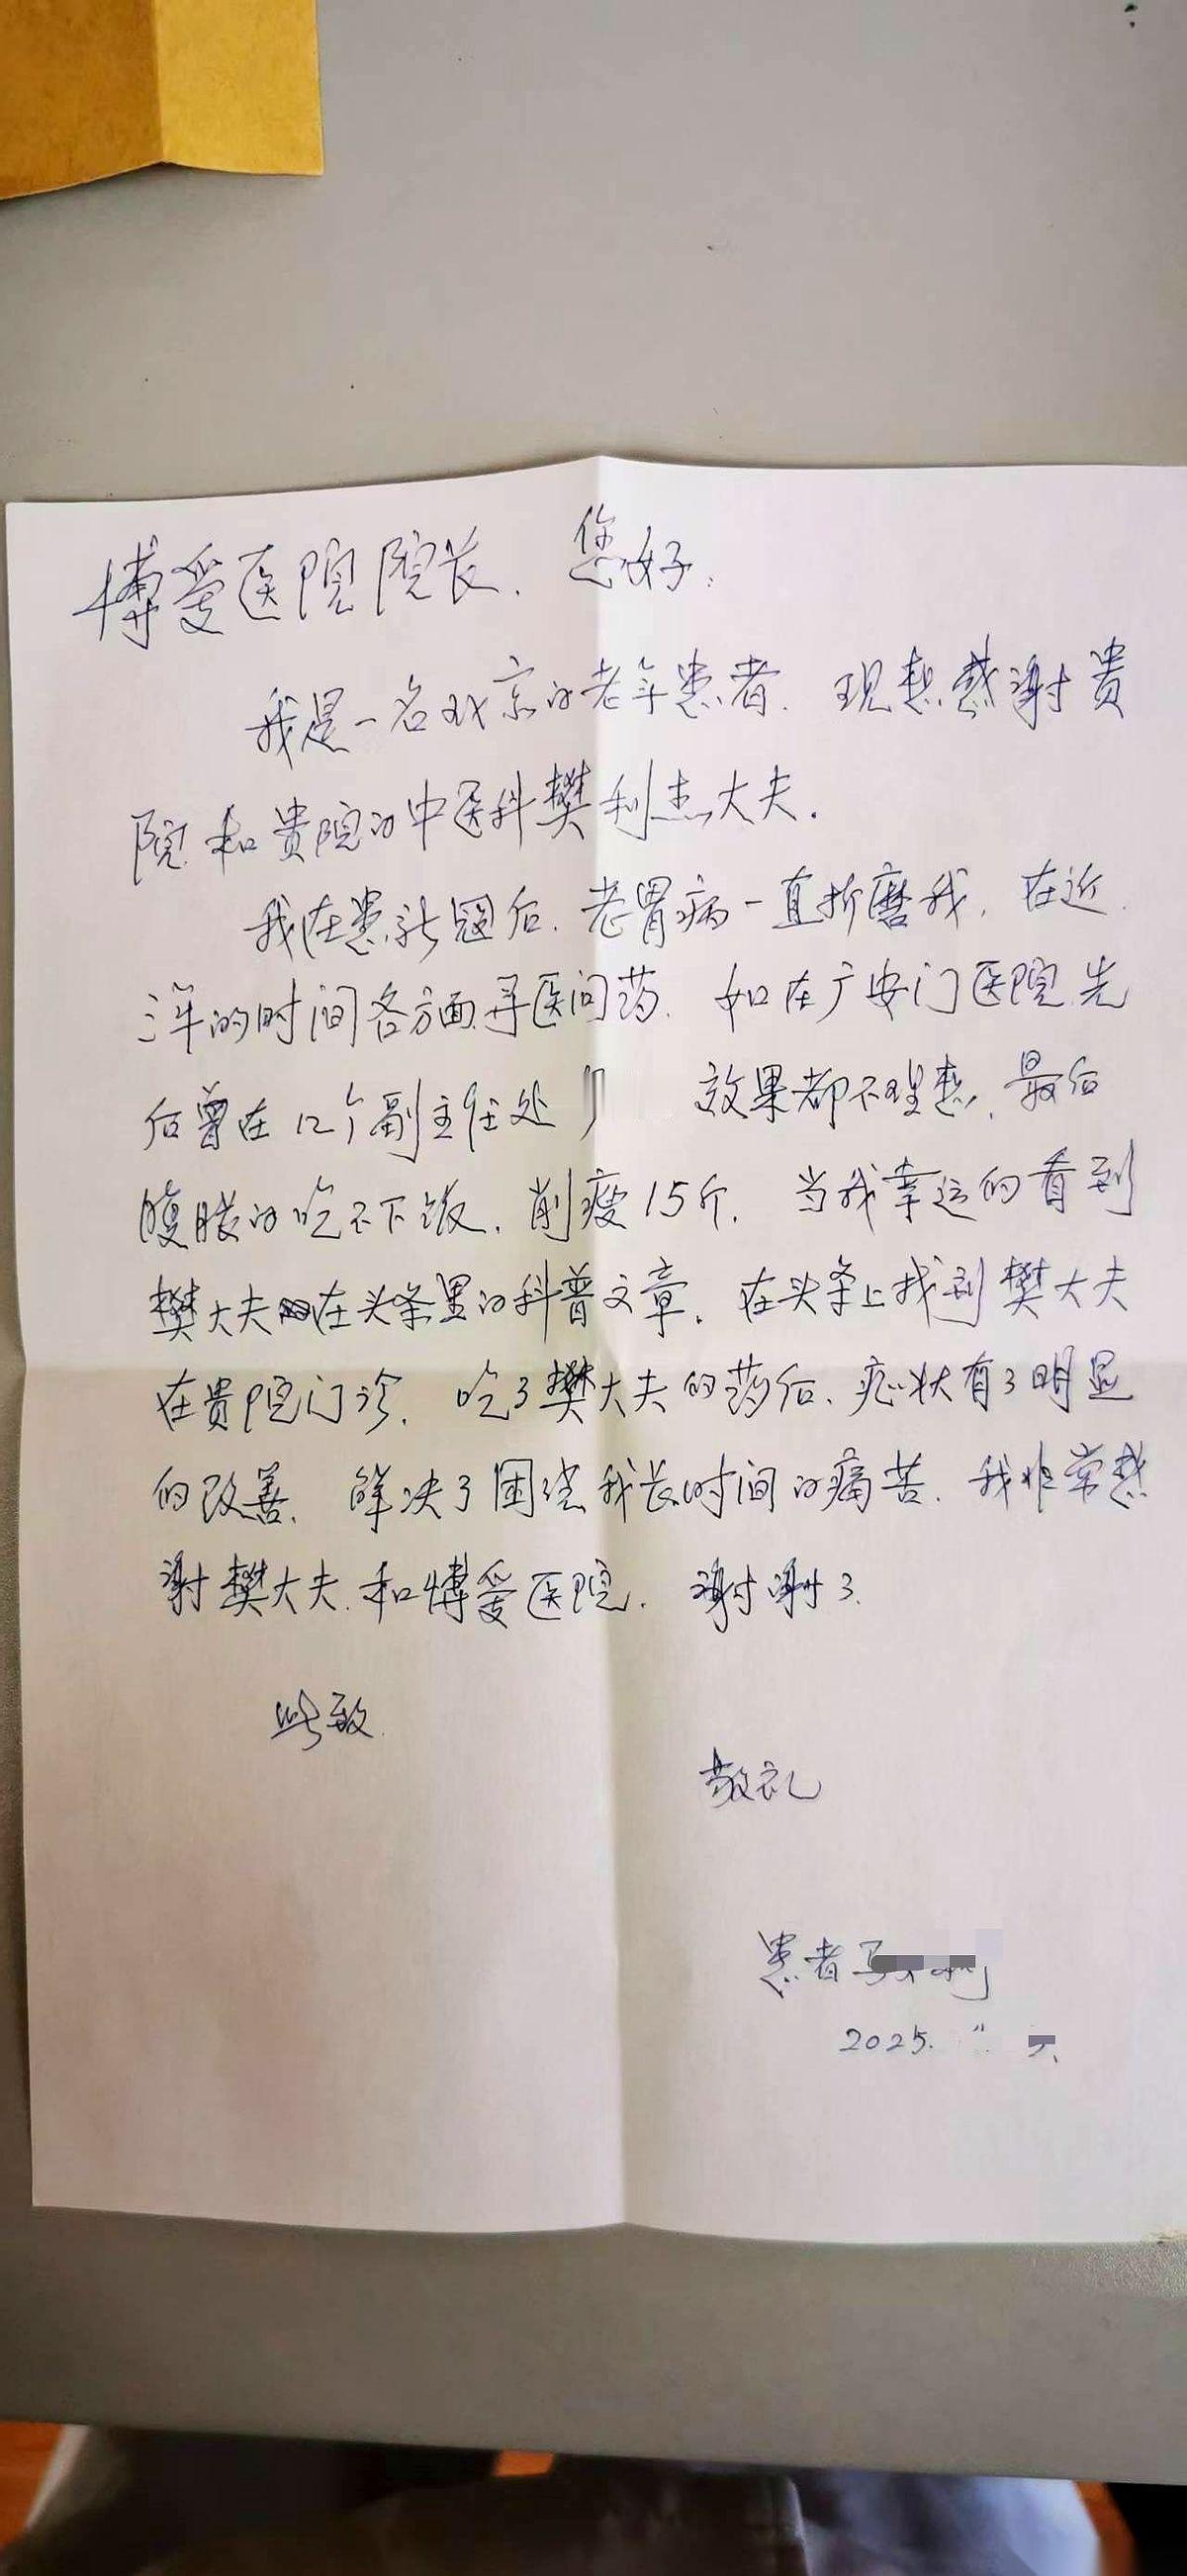 博爱医院院长、您好:
我是一名北京的老年患者、现想感谢贵
院和贵院的中医科樊利杰大夫.
我在患新冠后、老胃病一直折磨我、在近
三年的时间各方面寻医问药、如在广安门医院先
后曾在12个副主任处 效果都不理想、最后
腹胀的吃不下饭、削瘦15斤、当我幸运的看到
樊大夫在头条里的科普文章、在头条上找到樊大夫
在贵院门诊、吃了樊大夫的药后、症状有了明显
的改善、解决了困绕我长时间的痛苦、我非常感
谢樊大夫、和博爱医院、谢谢了.
此致
敬礼
患者马
2025.